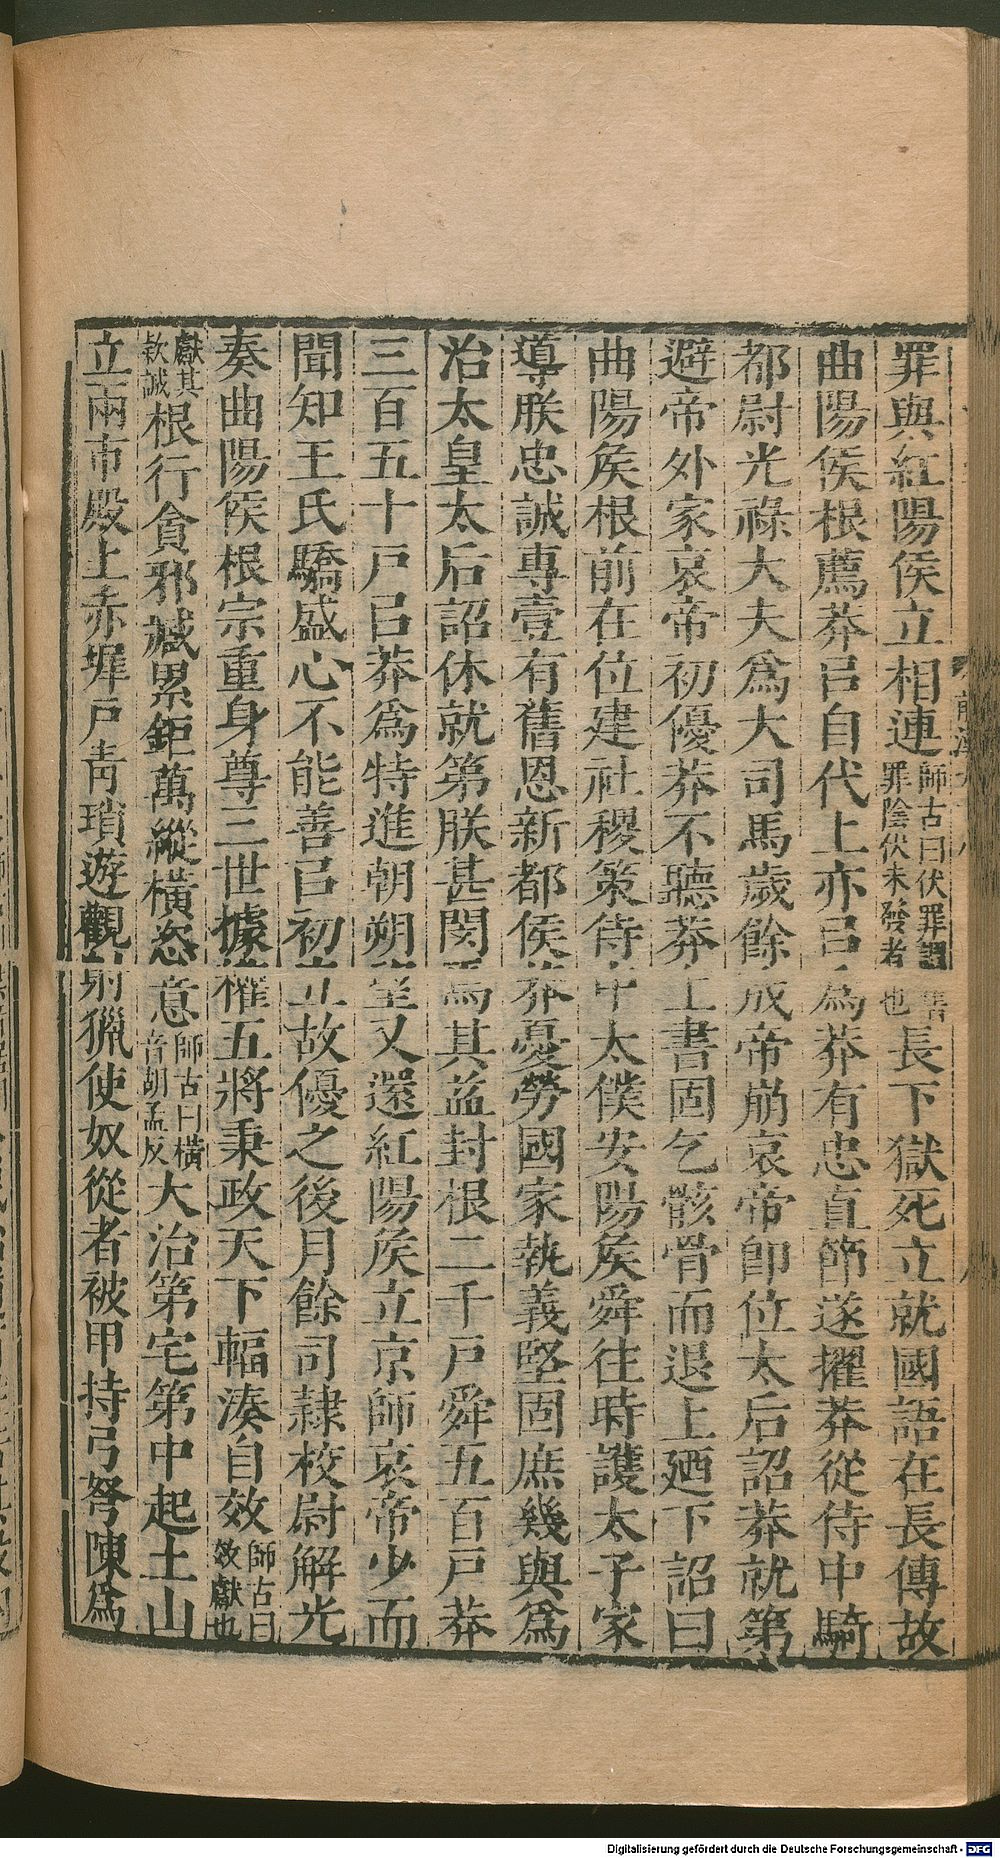 罪與紅陽侯立相連師古曰伏罪謂舊罪陰伏未發者也長下獄死立就國語在長傳故
曲陽侯根薦莽㠯自代上亦㠯為莽有忠直節遂擢莽從侍中騎
都尉光祿大夫爲大司馬歲餘成帝崩哀帝卽位太后詔莽就第
避帝外家哀帝初優莽不聽莽上書固乞骸骨而退上廼下詔曰
曲陽矦根前在位建社稷策侍中太僕安陽矦舜往時護太子家
導朕忠誠專壹有舊恩新都侯莽憂勞國家執義堅固庶幾與爲
治太皇太后詔休就第朕甚閔焉其益封根二千戸舜五百戸莽
三百五十戸㠯莽爲特進朝朔望又還紅陽矦立京師哀帝少而
聞知王氏驕盛心不能善㠯初立故優之後月餘司隷校尉解光
奏曲陽侯根宗重身尊三世據權五將秉政天下輻湊自效師古曰效獻也
獻其欵誠根行貪邪臧累鉅萬縱橫恣意師古曰橫音胡孟反大治第宅第中起土山
立兩市殿上赤墀戸靑瑣遊觀射獵使奴從者被甲持弓弩陳爲
Digitalisierung gefördert durch die Deutsche Forschungsgemeinschaft - DFG